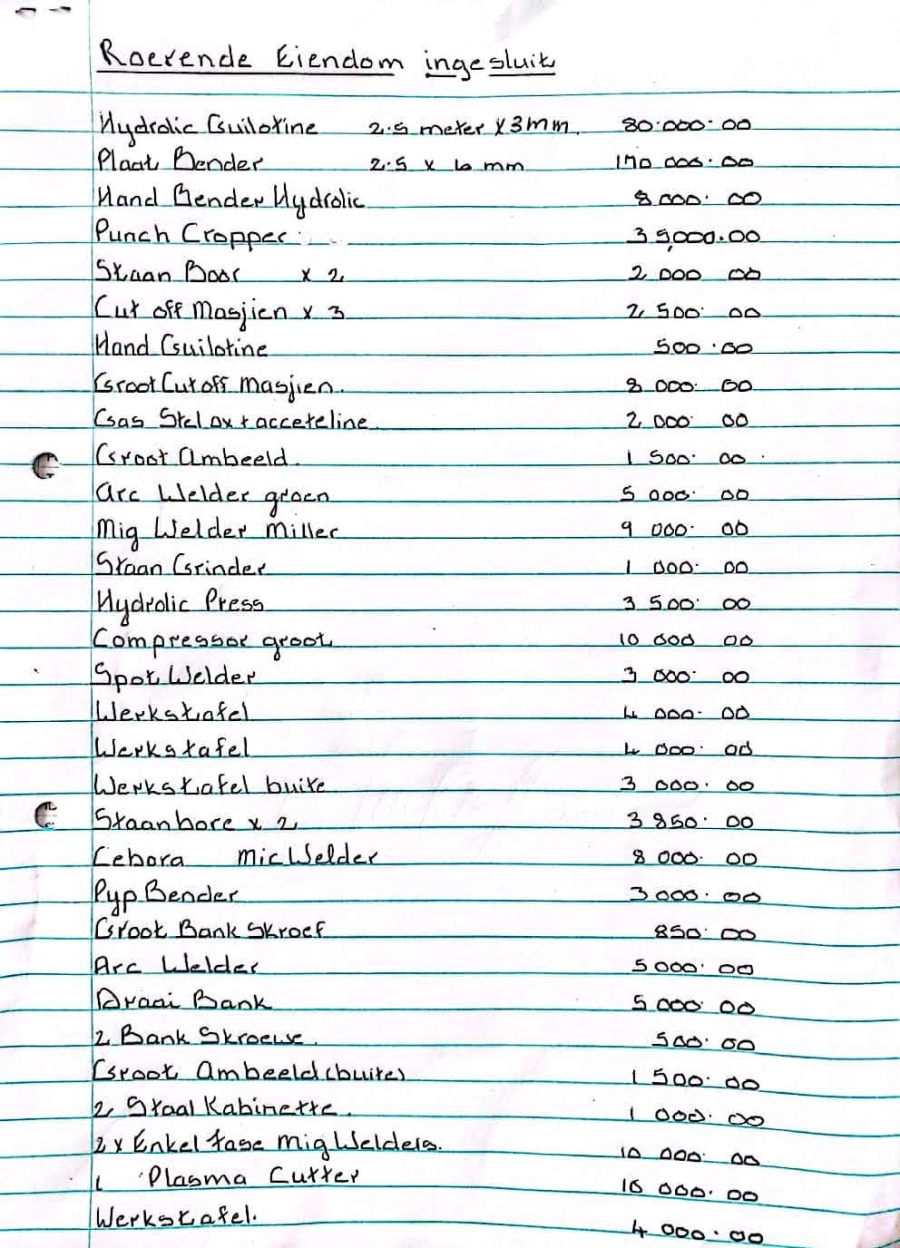 Roerende Eiendom ingesluit
Hydrolic Guilotine 2.5 meter x 3mm. 80.000.00
Plaat Bender 2.5 x 6 mm 170 000.00
Hand Bender Hydrolic 8 000.00
Punch Cropper 35,000.00
Staan Boor x 2 2 000 00
Cut off Masjien x 3 2 500.00
Hand Guilotine 500.00
Groot Cut off Masjien. 8 000.00
Gas Stel ox + acceteline 2 000.00
Groot Ambeeld. 1 500.00
Arc Welder groen 5 000.00
Mig Welder Miller 9 000.00
Staan Grinder 1 000.00
Hydrolic Press 3 500.00
Compressor groot 10 000 00
Spot Welder 3 000.00
Werkstafel 4 000.00
Werkstafel 4 000.00
Werkstafel buite 3 000.00
Staanbore x 2 3 850.00
Cebora MicWelder 8 000.00
Pyp Bender 3 000.00
Groot Bank Skroef 850.00
Arc Welder 5 000.00
Draai Bank 5 000.00
2 Bank Skroewe. 500.00
Groot Ambeeld (buite) 1 500.00
2 Staal Kabinette. 1 000.00
2 x Enkel fase Mig Welders. 10 000.00
1 Plasma Cutter 000.00
Werkstafel. 4 000.00